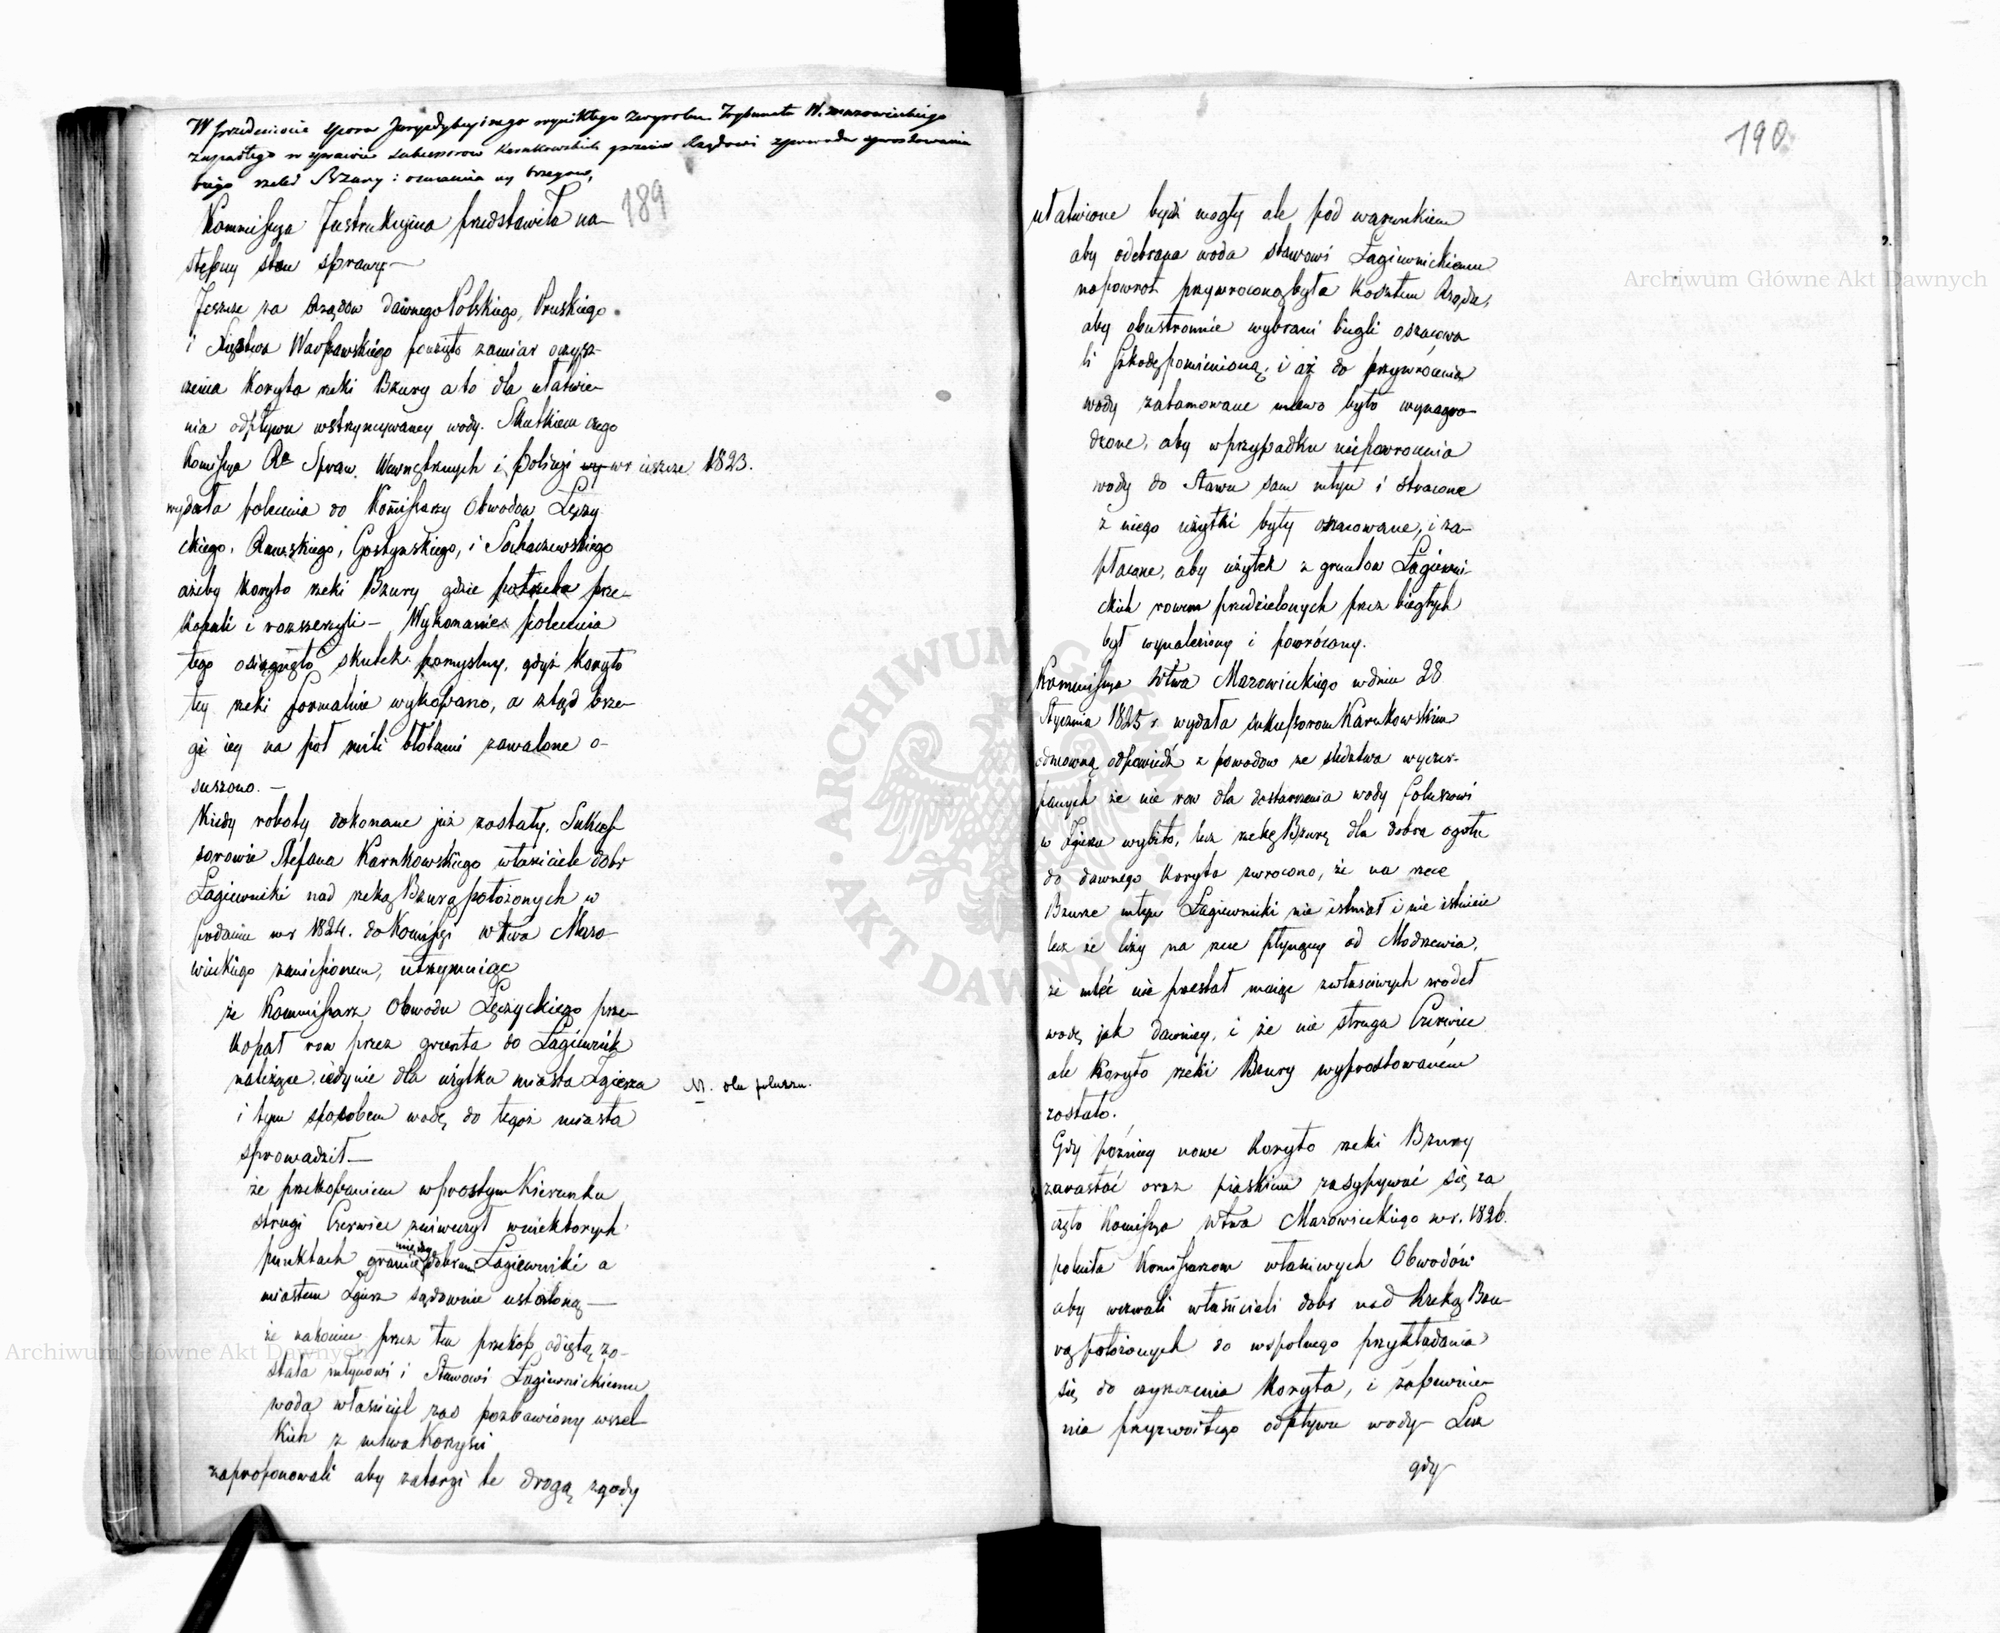 W przedmiocie sporu Jurysdykcyinego wynikłego z wyroku Trybunału W. Mazowieckiego
zapadłego w sprawie Sukcessorow Karnkowskich przeciw Rządowi z powodu sprostowania
biegu rzeki Bzury i osuszenia iey brzegow,
189
Kommissya Instrukcyina przedstawiła na-
stępny stan sprawy —
Jeszcze za Rządow dawnego Polskiego, Pruskiego
i Xięstwa Warszawskiego powzięto zamiar oczysz-
czenia Koryta rzeki Bzury a to dla ułatwie-
nia odpływu wstrzymywaney wody. Skutkiem czego
Komissya Ra Spraw. Wewnętrznych i Policyi w r ieszcze 1823.
wydała polecenia do Kommissarzy Obwodow Łęczy
ckiego, Rawskiego, Gostynskiego, i Sochaczewskiego
ażeby Koryto rzeki Bzury gdzie potrzeba prze-
kopali i rozszerzyli — Wykonanie polecenia
tego osiągnęło skutek pomyslny, gdyż Koryto
tey rzeki formalnie wykopano, a ztąd brze-
gi iey na puł mili błotami zawalone o-
suszono. —
Kiedy roboty dokonane już zostały, Sukces-
sorowie Stefana Karnkowskiego właściciele dobr
Łagiewniki nad rzeką Bzurą położonych w
podaniu w r 1824. do Komissyi W twa Mazo-
wieckiego zaniesionem, utrzymuiąc
że Kommissarz Obwodu Łęczyckiego prze-
kopał row przez grunta do Łagiewnik
należące, iedynie dla użytku miasta Zgierza
N. dla foluszu.
i tym sposobem wodę do tegoż miasta
sprowadził —
że przekopaniem w prostym Kierunku
strugi Czerwiec zniweczył w niektorych
punktach granicę między dobrami Łagiewniki a
miastem Zgierz sądownie ustaloną —
że nakoniec przez ten przekop odiętą zo-
stała młynowi i Stawowi Łagiewnickiemu
woda właściciel zas pozbawiony wszel-
kich z mlewa Korzysci
zaproponowali aby zatargi te drogą zgody
190
ułatwione bydź mogły ale pod warunkiem
aby odebrana woda stawowi Łagiewnickiemu
napowrot przywroconą była kosztem Rządu,
aby obustronnie wybrani biegli oszacowa
li szkodę pomienioną, i aż do przywrócenia
wody zatamowane mlewo było wynagro-
dzone, aby w przypadku niepowrocenia
wody do Stawu sam młyn i stracone
z niego użytki były oszacowane, i za-
płacone, aby użytek z gruntow Łagiewni-
ckich rowem przedzielonych przez biegłych
był wynaleziony i powrócony.
Kommissya Wtwa Mazowieckiego w dniu 28
Stycznia 1825 r. wydała sukcessorom Karnkowskim
odmowną odpowiedź z powodow ze śledztwa wyczer-
panych że nie row dla dostarczenia wody foluszowi
w Zgierzu wybito, lecz rzekę Bzurę dla dobra ogołu
do dawnego koryta zwrocono, że na rzece
Bzurze młyn Łagiewnicki nie istniał i nie istnieie
lecz że leży na rzece płynącey od Modrzewia,
że mleć nie przestał maiąc z właściwych zrodeł
wodę jak dawniey, i że nie struga Czerwiec
ale Koryto rzeki Bzury wyprostowaném
zostało.
Gdy poźniey nowe Koryto rzeki Bzury
zarastać oraz piaskiem zasypywać się za
częło Komissya Wtwa Mazowieckiego w r. 1826.
poleciła Komissarzom właściwych Obwodów
aby wezwali właścicieli dobr nad Rzeką Bzu-
rą położonych do wspolnego przykładania
się do czyszczenia Koryta, i zapewnie-
nia przyzwoitego odpływu wody — Lecz
gdy
Archiwum Główne Akt Dawnych
Archiwum Główne Akt Dawnych
ARCHIWUM GŁÓWNE AKT DAWNYCH